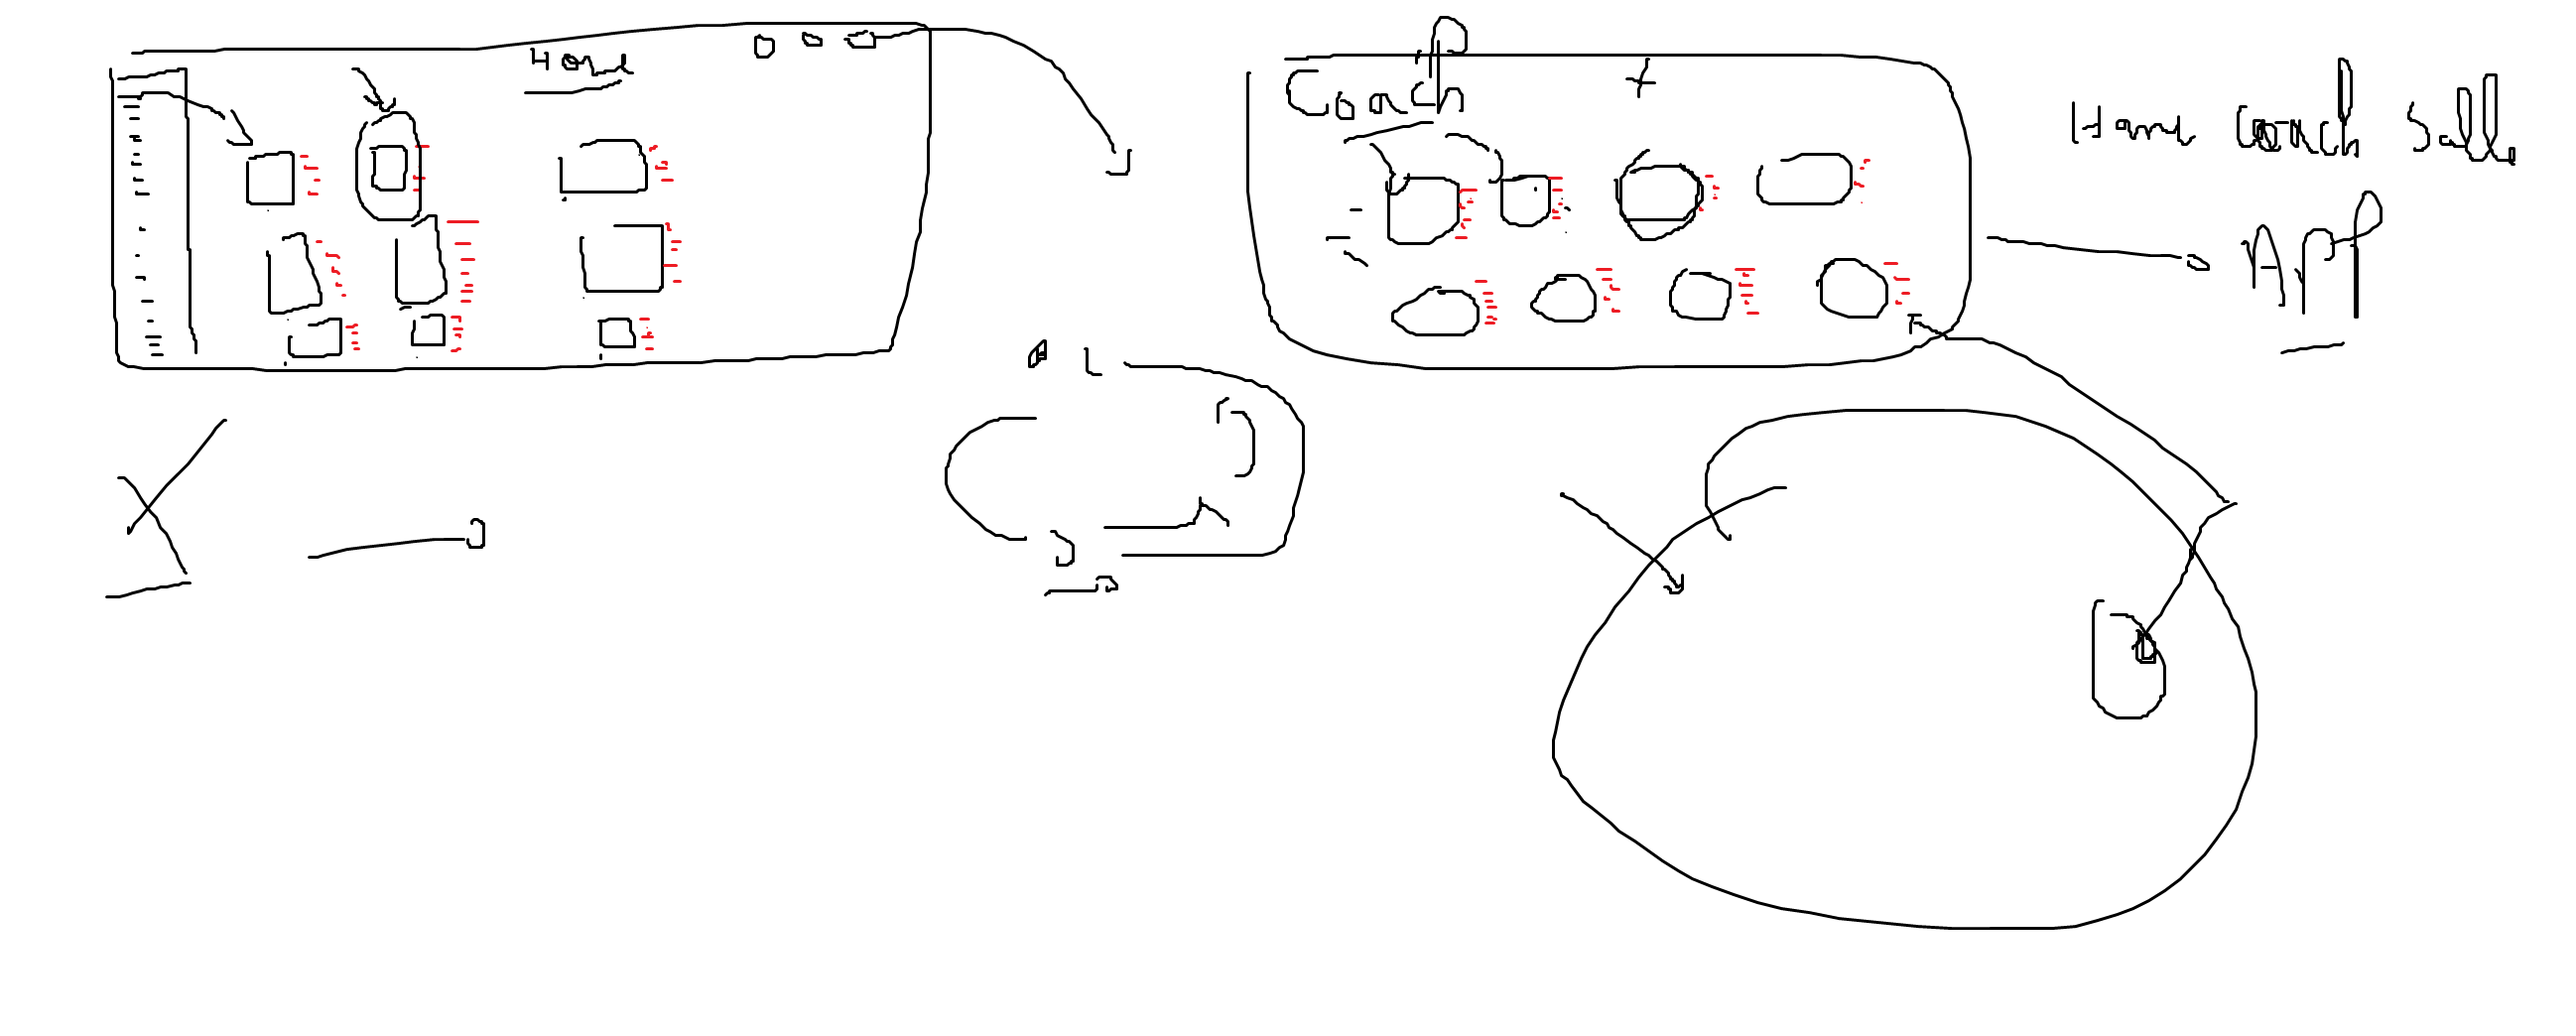 Home
Coach
Home Coach Sell
App